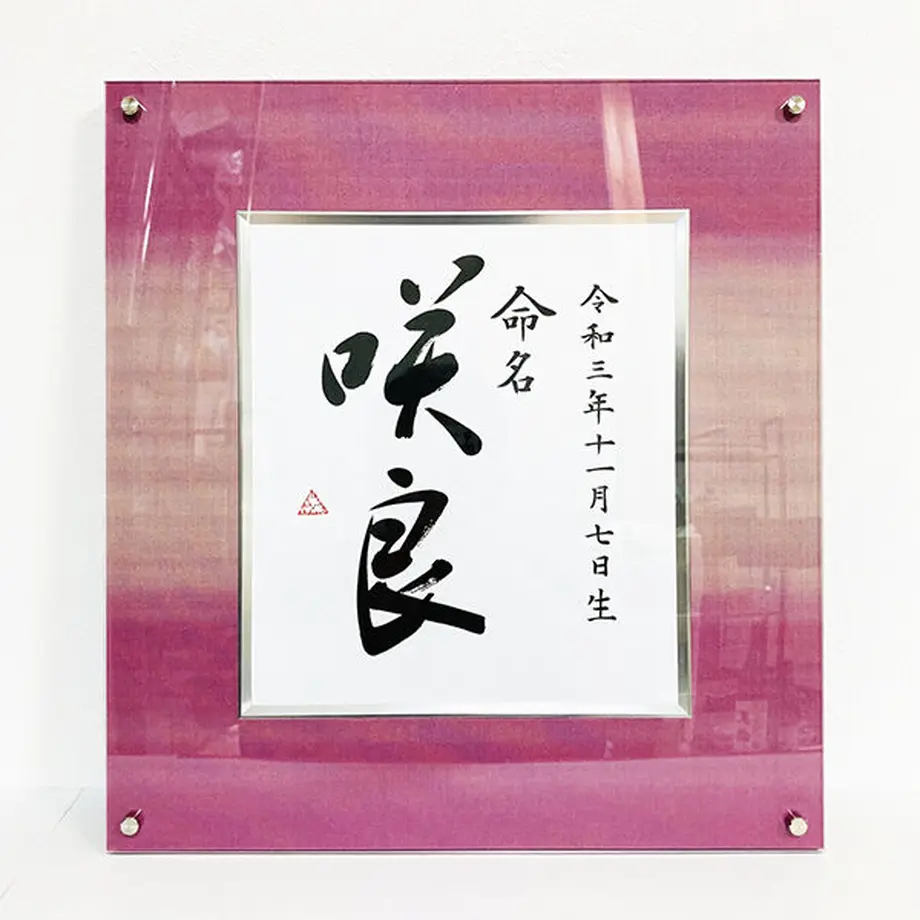 令和三年十一月七日生
命名
咲良